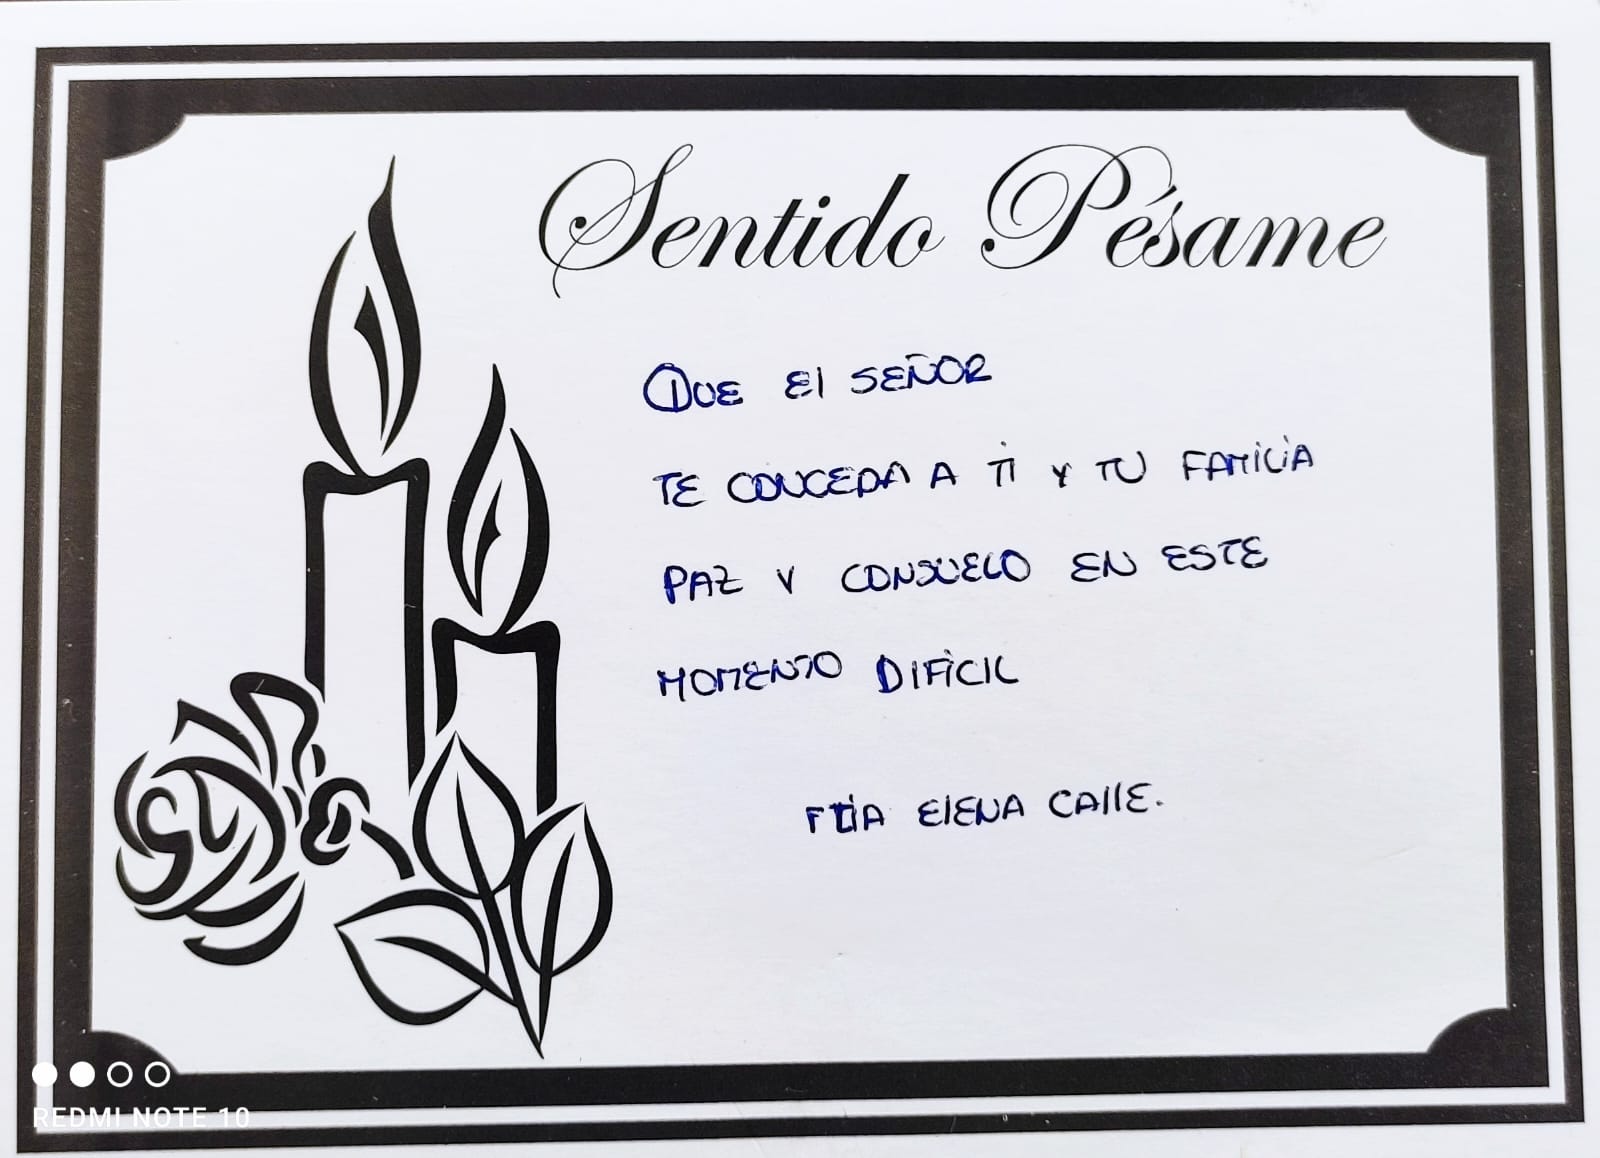 Sentido Pésame
QUE El SEÑOR
TE CONCEDA A Ti Y TU FAMILIA
PAZ Y CONSUELO EN ESTE
MOMENTO DIFICIL
ElENA CAllE.
REDMI NOTE 10